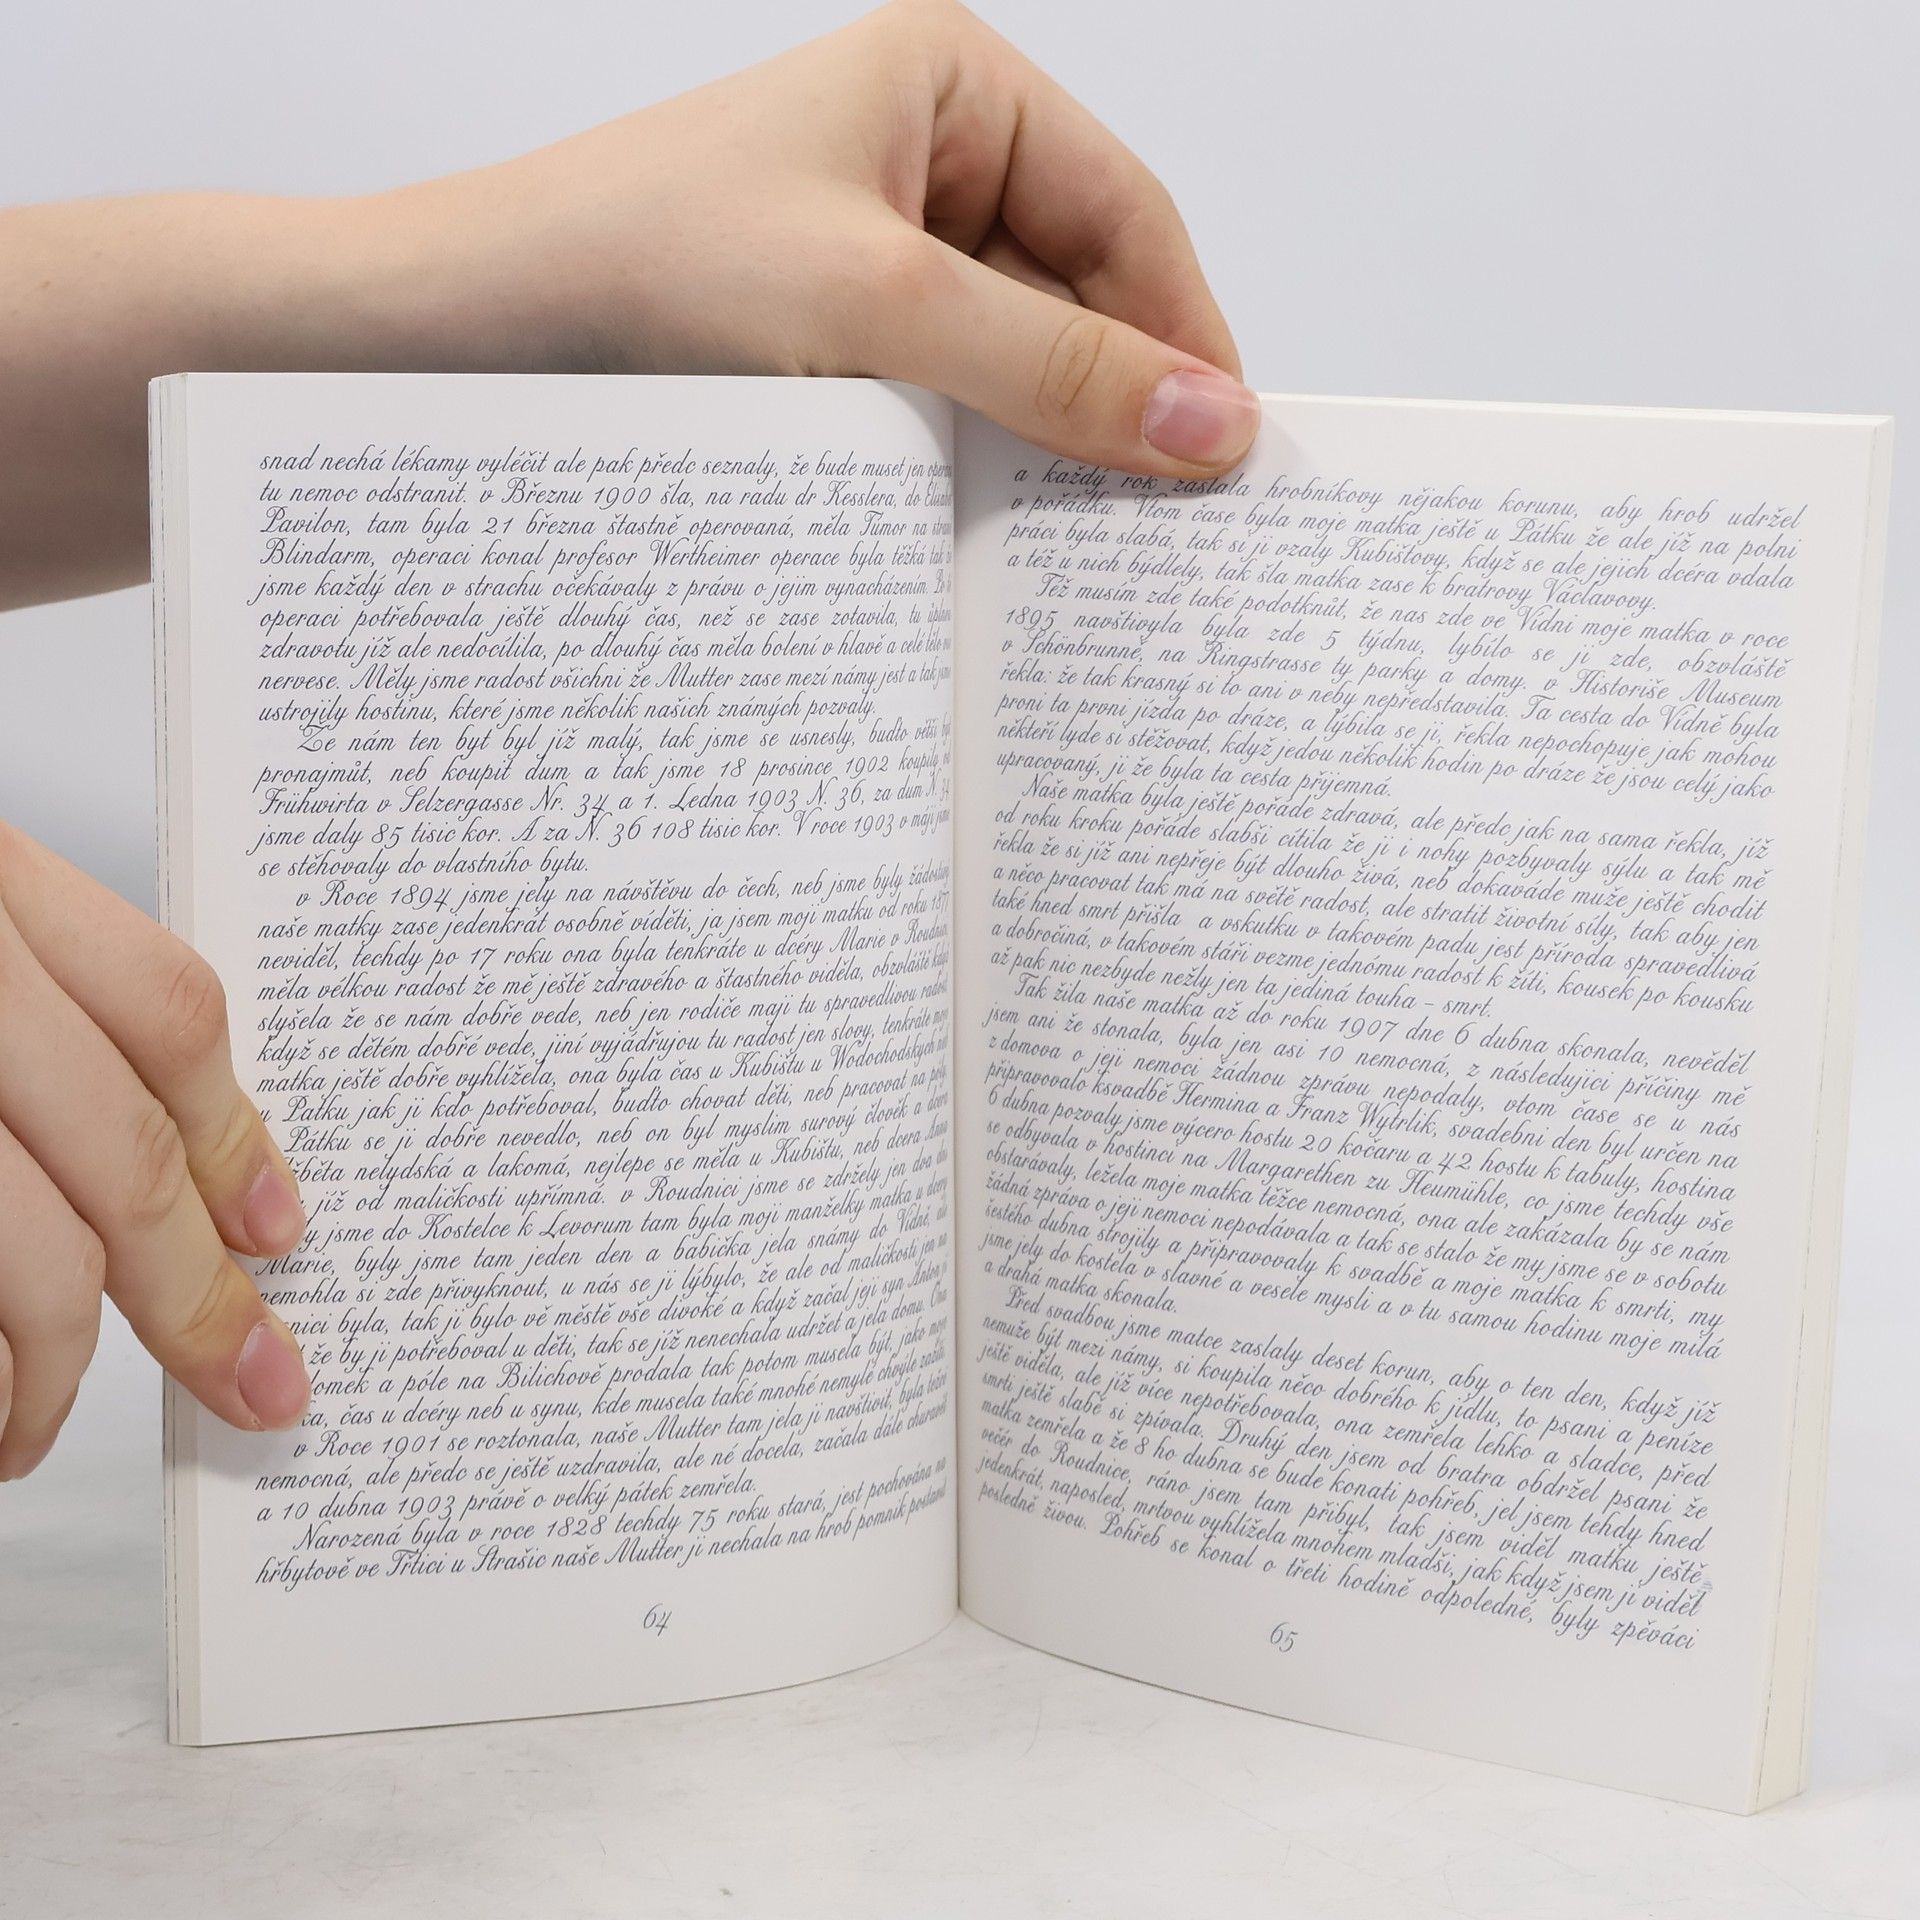 snad nechá lékamy vyléčit ale pak předc seznaly, že bude muset jen
tu nemoc odstranit. v Březnu 1900 šla, na radu dr Kesslera, do
Pavilon, tam byla 21 března štastně operovaná, měla Tumor na
Blindarm, operaci konal profesor Wertheimer operace byla těžká tak
jsme každý den v strachu očekávaly z právu o jejim vynacházením.
operaci potřebovala ještě dlouhý čas, než se zase zotavila, tu
zdravotu již ale nedocílila, po dlouhý čas měla bolení v hlavě a celé
nervese. Měly jsme radost všichni že Mutter zase mezí námy jest a tak
ustrojily hostinu, které jsme několik našich známých pozvaly.
Že nám ten byt byl již malý, tak jsme se usnesly, budto větší
pronajmůt, neb koupit dum a tak jsme 18 prosince 1902 koupily
Frühwirta v Selzergasse Nr. 34 a 1. Ledna 1903 N. 36, za dum N. 34
jsme daly 85 tisic kor. A za N. 36 108 tisic kor. V roce 1903 v máji
se stěhovaly do vlastního bytu.
v Roce 1894 jsme jely na návštěvu do čech, neb jsme byly
naše matky zase jedenkrát osobně víděti, ja jsem moji matku od roku
neviděl, techdy po 17 roku ona byla tenkráte u dcéry Marie v
měla vélkou radost že mě ještě zdravého a štastného viděla, obzvláště
slyšela že se nám dobře vede, neb jen rodiče maji tu spravedlivou
když se dětém dobřé vede, jiní vyjádřujou tu radost jen slovy, tenkráte
matka ještě dobře vyhlížela, ona byla čas u Kubištu u Wodochodských
u Patku jak ji kdo potřeboval, budto chovat děti, neb pracovat na
Pátku se ji dobře nevedlo, neb on byl myslim surový člověk a
nelydská a lakomá, nejlepe se měla u Kubištu, neb dcera
již od maličkosti upřímná. v Roudnici jsme se zdržely jen dva
jsme do Kostelce k Levorum tam byla moji manželky matka u
Marie, byly jsme tam jeden den a babička jela snámy do Vídné,
nemohla si zde přivyknout, u nás se ji lýbylo, že ale od maličkosti jen
byla, tak ji bylo vě městě vše divoké a když začal její syn
že by ji potřeboval u děti, tak se již nenechala udržet a jela domu.
a póle na Bilichově prodala tak potom musela být, jako
čas u dcéry neb u synu, kde musela také mnohé nemylé chvýle
v Roce 1901 se roztonala, naše Mutter tam jela ji navštivit, byla
nemocná, ale předc se ještě uzdravila, ale né docela, začala dále
a 10 dubna 1903 právě o velký pátek zemřela.
Narozená byla v roce 1828 techdy 75 roku stará, jest pochována na
hřbytově ve Trtici u Strašic naše Mutter ji nechala na hrob pomník
64
a každý rok zaslala hrobníkovy nějakou korunu, aby hrob udržel
v pořádku. Vtom čase byla moje matka ještě u Pátku že ale již na polni
práci byla slabá, tak si ji vzaly Kubištovy, když se ale jejich dcéra vdala
a též u nich býdlely, tak šla matka zase k bratrovy Václavovy.
Též musím zde také podotknůt, že nas zde ve Vídni moje matka v roce
1895 navštivyla byla zde 5 týdnu, lybílo se ji zde, obzvláště
v Schönbrunně, na Ringstrasse ty parky a domy. v Historiše Museum
řekla: že tak krasný si to ani v neby nepředstavila. Ta cesta do Vídně byla
proni ta prvni jízda po dráze, a lýbila se ji, řekla nepochopuje jak mohou
někteří lyde si stěžovat, když jedou několik hodin po dráze že jsou celý jako
upracovaný, ji že byla ta cesta příjemná.
Naše matka byla ještě pořáde zdravá, ale předc jak na sama řekla, již
od roku kroku pořáde slabši cítila že ji i nohy pozbyvaly sýlu a tak mě
řekla že si již ani nepřeje být dlouho živá, neb dokaváde muže ještě chodit
a něco pracovat tak má na světě radost, ale stratit životní síly, tak aby jen
také hned smrt přišla a vskutku v takovém padu jest příroda spravedlivá
a dobročiná, v takovém stáři vezme jednómu radost k žíti, kousek po kousku
až pak nic nezbyde nežly jen ta jediná touha – smrt.
Tak žila naše matka až do roku 1907 dne 6 dubna skonala, nevěděl
jsem ani že stonala, byla jen asi 10 nemocná, z následujici příčiny mě
z domova o její nemoci žádnou zprávu nepodaly, vtom čase se u nás
připravovalo ksvadbě Hermina a Franz Wytrlik, svadebni den byl určen na
6 dubna pozvaly jsme výcero hostu 20 kočaru a 42 hostu k tabuly, hostina
se odbyvala v hostinci na Margarethen zu Heumühle, co jsme techdy vše
obstarávaly, ležela moje matka těžce nemocná, ona ale zakázala by se nám
žádná zpráva o její nemoci nepodávala a tak se stalo že my jsme se v sobotu
šestého dubna strojily a připravovaly k svadbě a moje matka k smrti, my
jsme jely do kostela v slavné a vesele mysli a v tu samou hodinu moje milá
a drahá matka skonala.
Před svadbou jsme matce zaslaly deset korun, aby o ten den, když již
nemuže být mezi námy, si koupila něco dobrého k jídlu, to psani a peníze
ještě viděla, ale již více nepotřebovala, ona zemřela lehko a sladce, před
smrti ještě slabě si zpívala. Druhý den jsem od bratra obdržel psani že
matka zemřela a že 8 ho dubna se bude konati pohřeb, jel jsem tehdy hned
večér do Roudnice, ráno jsem tam přibyl, tak jsem viděl matku ještě
jedenkrát, naposled, mrtvou vyhlížela mnohem mladši, jak když jsem ji viděl
posledně živou. Pohřeb se konal o třeti hodině odpoledné, byly zpěváci
65